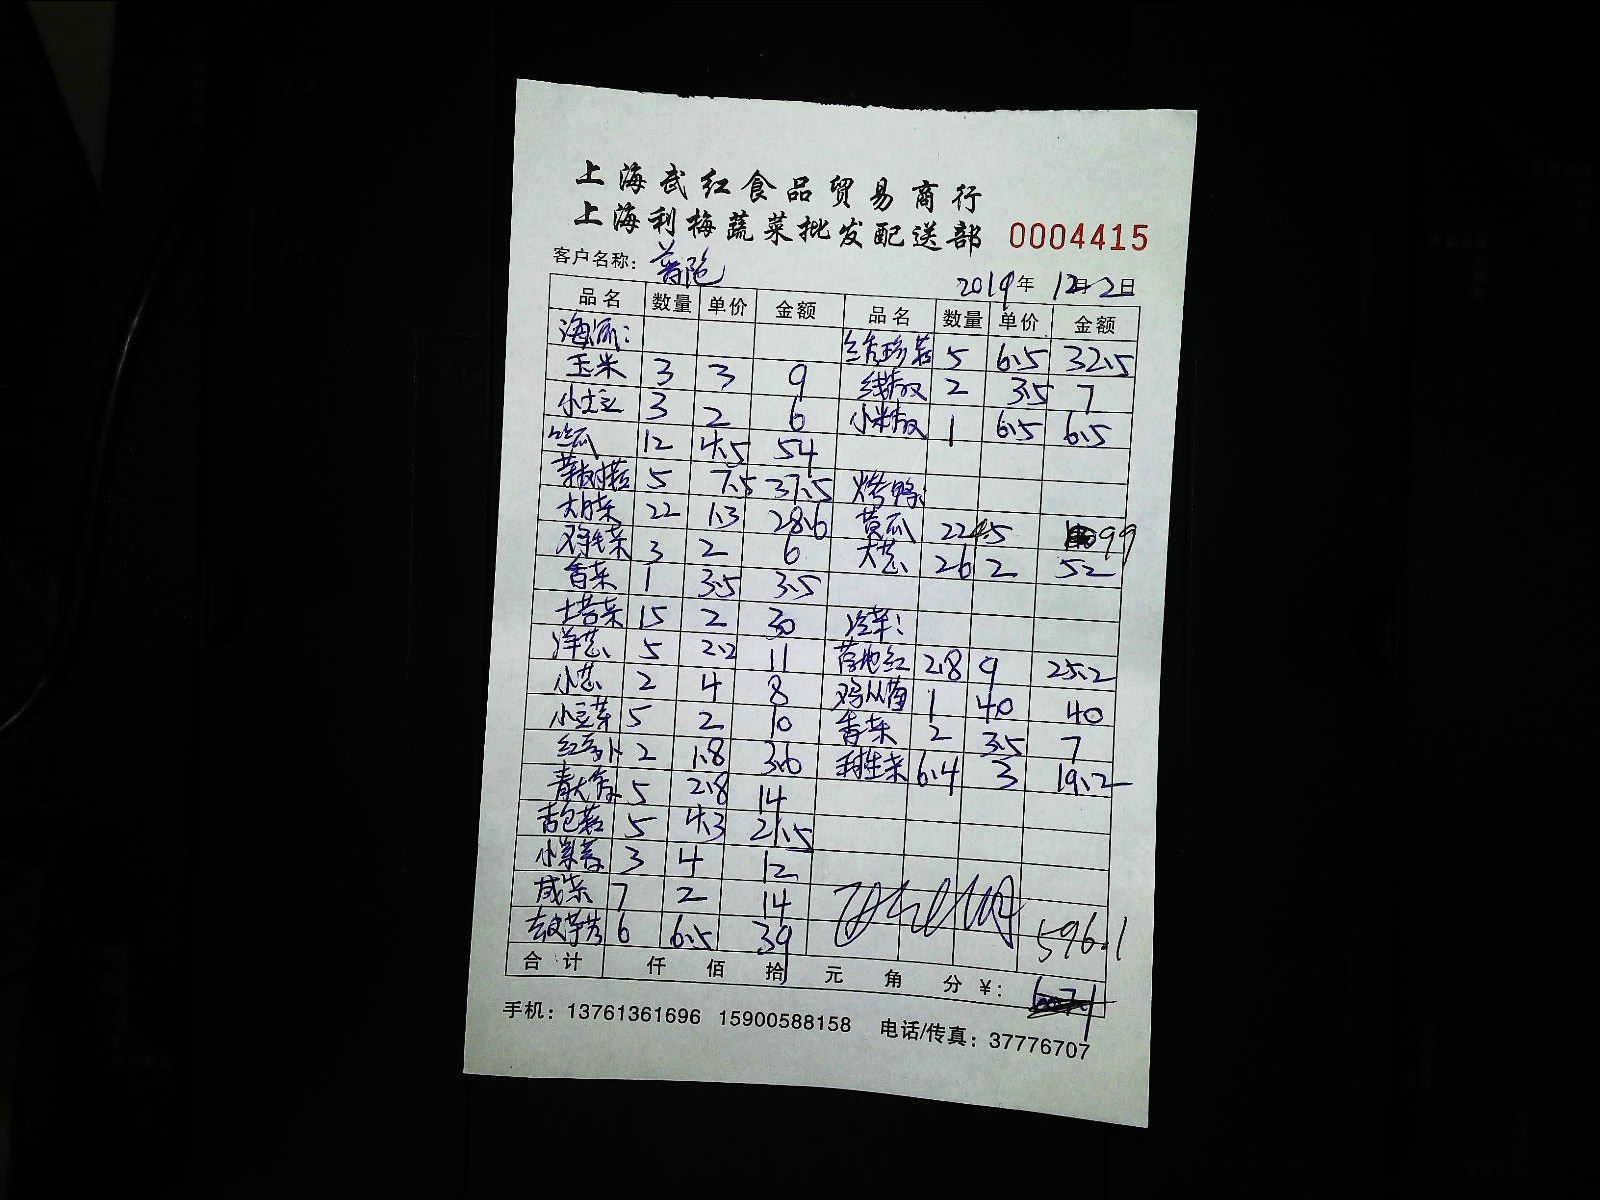 上海武红食品贸易商行
上海利梅蔬菜批发配送部 0004415
客户名称：普陀 2019年12月2日
品名 数量 单价 金额 品名 数量 单价 金额
海派：
5 6.5 32.5
玉米 3 3 9 线椒 2 3.5 7
小土豆 3 2 6 小米椒 1 6.5 6.5
丝瓜 12 4.5 54
茶树菇 5 7.5 37.5 烤鸭：
大白菜 22 1.3 28.6 黄瓜 22 4.5 99
鸡毛菜 3 2 6 大葱 26 2 52
香菜 1 3.5 3.5
土塔菜 15 2 30 冷菜：
洋葱 5 2.2 11 落地红 2.8 9 25.2
小葱 2 4 8 鸡从菌 1 40 40
小豆芽 5 2 10 香菜 2 3.5 7
红萝卜 2 1.8 3.6 球生菜 6.4 3 19.2
青大蒜 5 2.8 14
杏包菇 5 4.3 21.5
3 4 12
咸菜 7 2 14
去皮芋艿 6 6.5 39 596.1
合计 仟 佰 拾 元 角 分 ¥：
手机：13761361696 15900588158 电话/传真：37776707